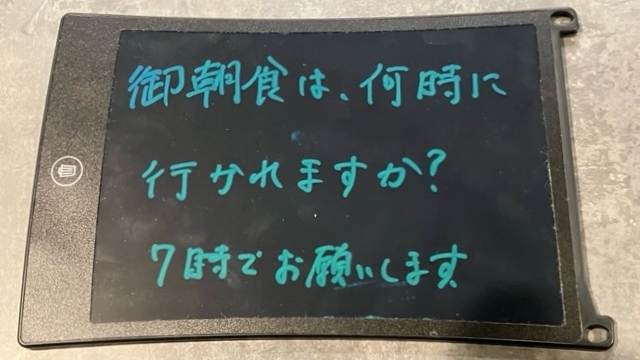 御朝食は、何時に
行かれますか?
7時でお願いします